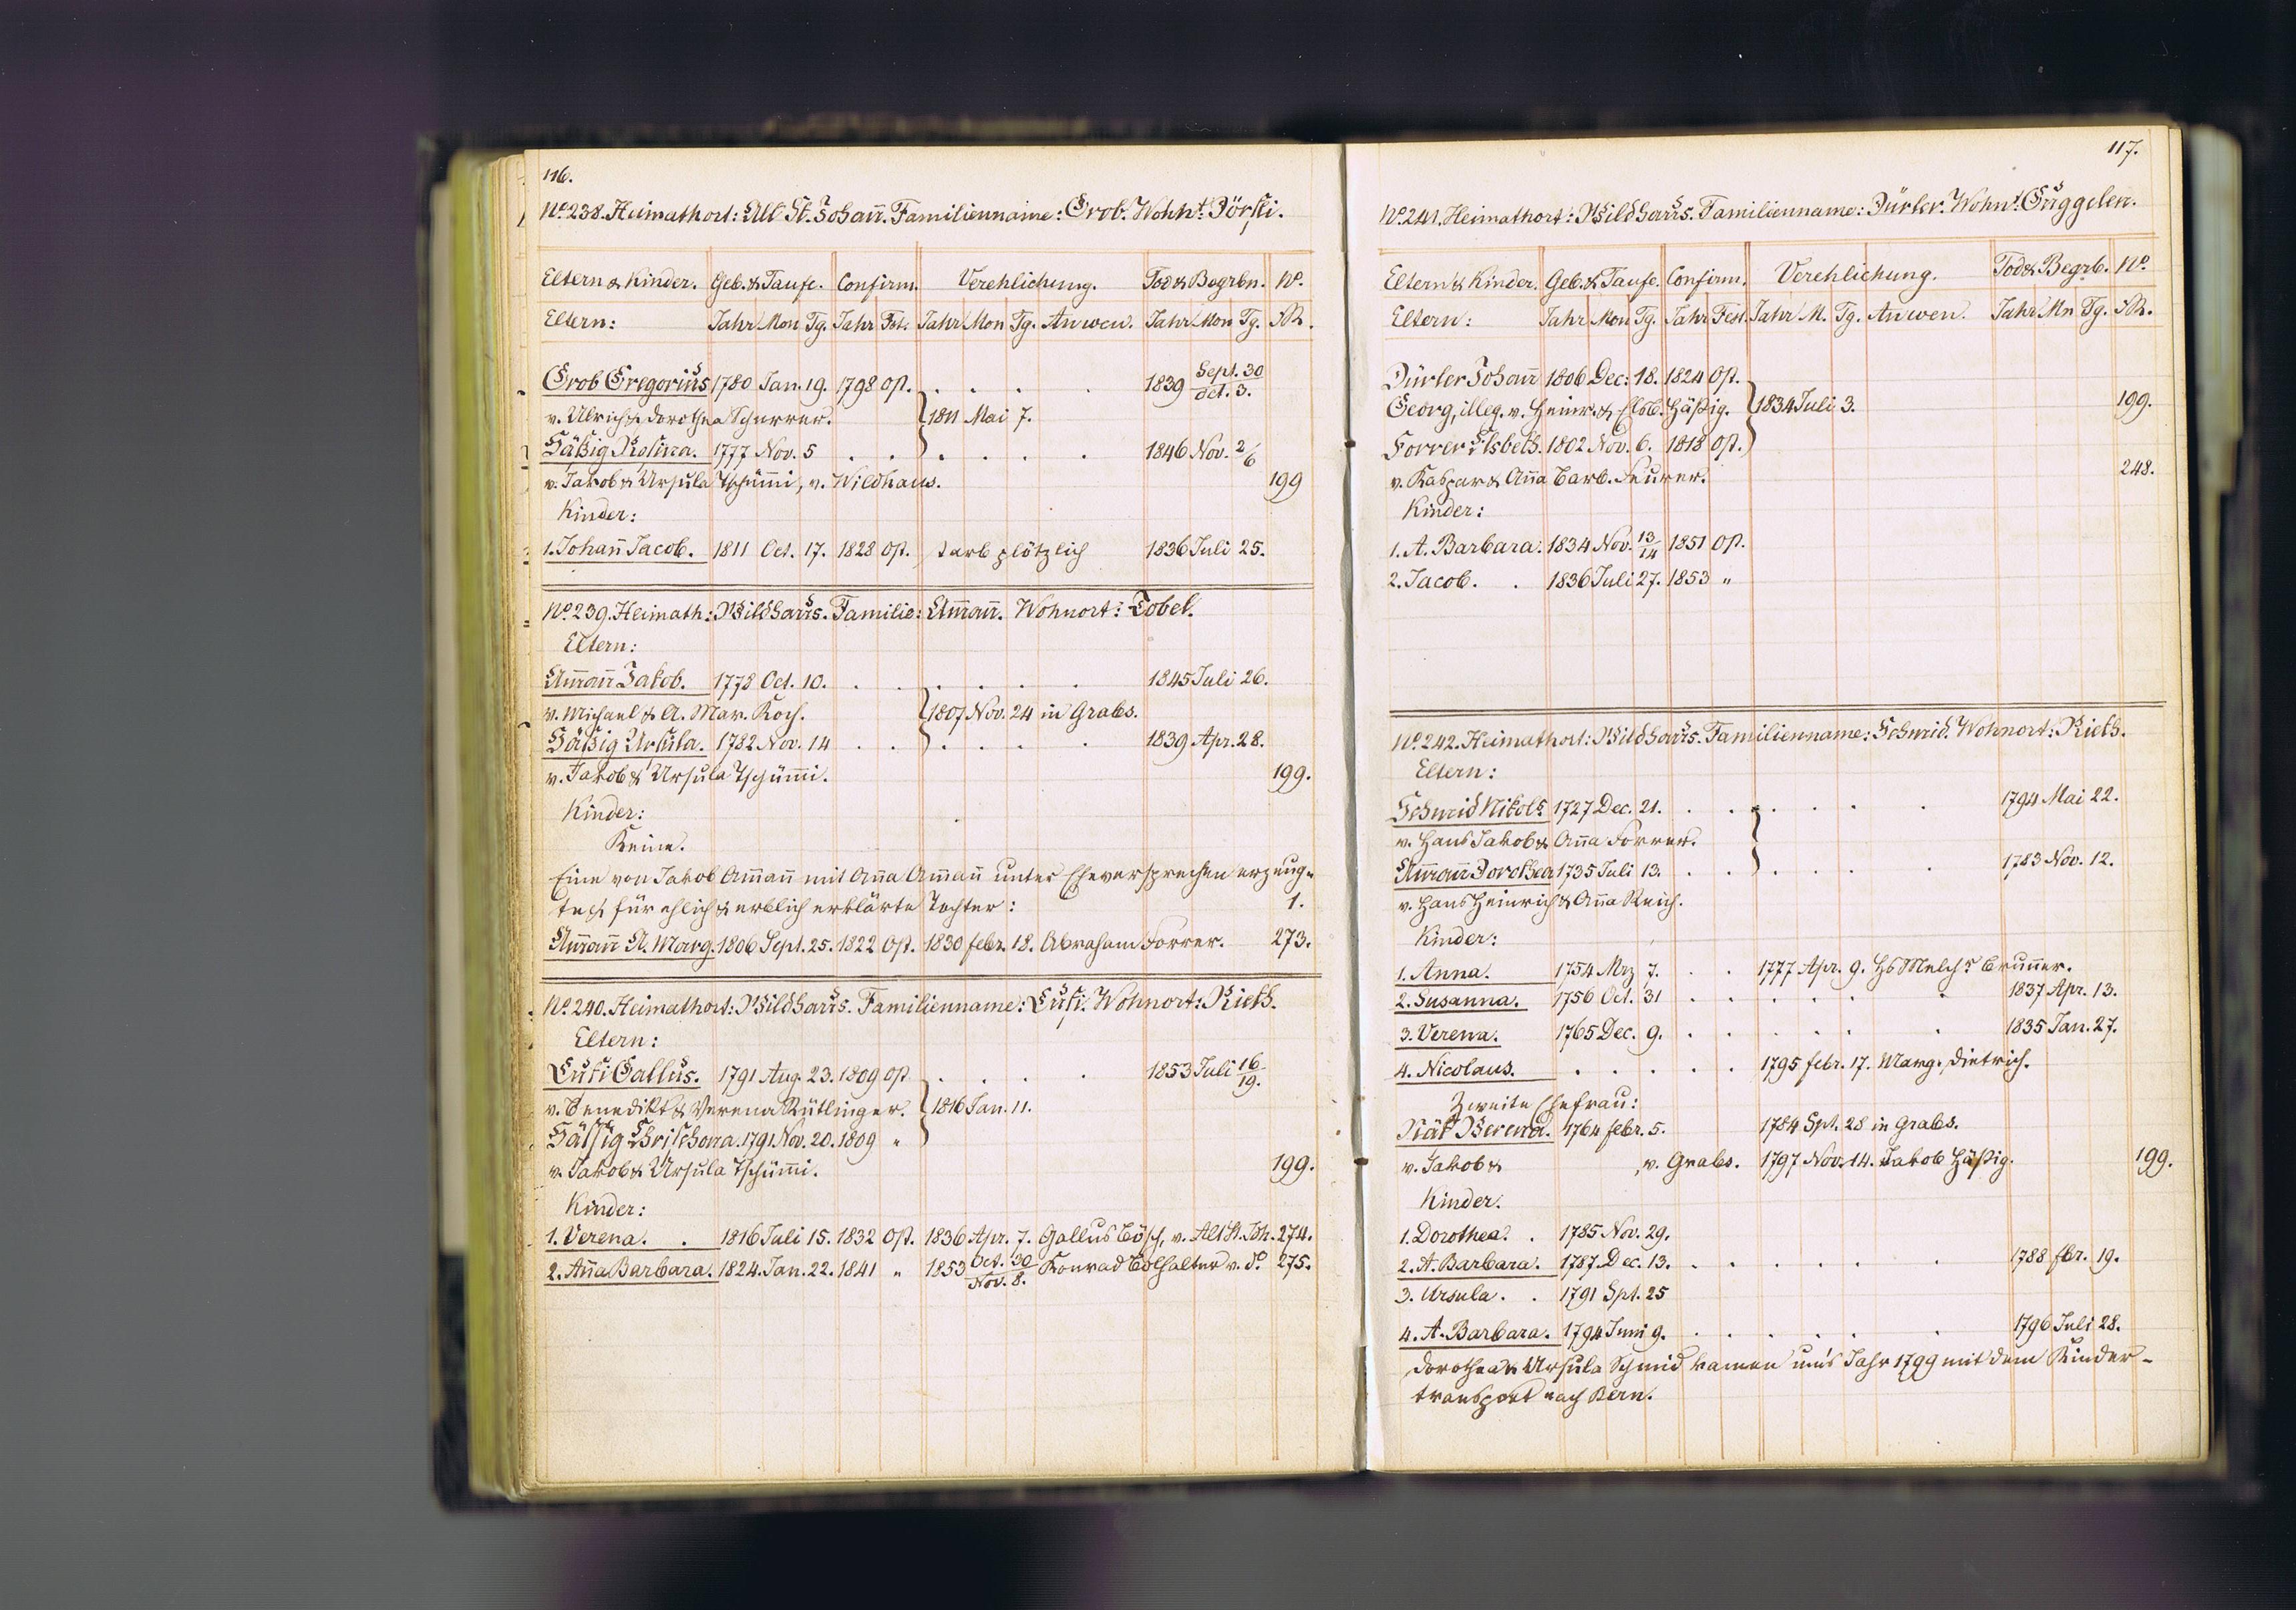 116.
No. 238. Heimathort: Alt St. Johan̄. Familienname: Grob. Wohnt. Dörfli.
Eltern & Kinder. Geb. & Taufe. Confirm. Verehlichung. Tod & Begrbn. No.
Eltern: Jahr Mon Tg. Jahr Fst. Jahr Mon Tg. Anwen. Jahr Mon Tg. RR.
Grob Gregorius 1780 Jan. 19. 1798 Ost. . . . . 1839 Sept. 30 / Oct. 3.
v. Ulrich & Dorothea Scherrer. 1811 Mai 7.
Häßig Rosina. 1777 Nov. 5 . . . . . . 1846 Nov. 2/6
v. Jakob & Ursula Tschüm̄i, v. Wildhaus. 199
Kinder:
1. Johan̄ Jacob. 1811 Oct. 17. 1828 Ost. starb plötzlich 1836 Juli 25.
No. 239. Heimath: Wildhaus. Familie: Am̄an̄. Wohnort: Tobel.
Eltern:
Am̄an̄ Jakob. 1778 Oct. 10. . . . . . . 1845 Juli 26.
v. Michael & A. Mar. Koch. 1807 Nov. 24 in Grabs.
Häßig Ursula. 1782 Nov. 14 . . . . . . 1839 Apr. 28.
v. Jakob & Ursula Tschüm̄i. 199.
Kinder:
Keine.
Eine von Jakob Am̄an̄ mit An̄a Am̄an̄ unter Eheversprechen erzeug-
te & für ehlich & erblich erklärte Tochter: 1.
Am̄an̄ A. Marg. 1806 Sept. 25. 1822 Ost. 1830 febr. 18. Abraham Forrer. 273.
No. 240. Heimathort: Wildhaus. Familienname: Luti. Wohnort: Rieth.
Eltern:
Luti Gallus. 1791 Aug. 23. 1809 Ost . . . . 1853 Juli 16/19.
v. Benedikt & Verena Rütlinger. 1816 Jan. 11.
Häßig Brischona. 1791 Nov. 20. 1809 "
v. Jakob & Ursula Tschüm̄i. 199.
Kinder:
1. Verena. . 1816 Juli 15. 1832 Ost. 1836 Apr. 7. Gallus Bösch, v. Alt St. Joh. 274.
2. An̄a Barbara. 1824. Jan. 22. 1841 " 1853 Oct. 30 / Nov. 8. Konrad Bolhalter v. do. 275.
117.
No. 241. Heimathort: Wildhaus. Familienname: Dürler. Wohnt. Guggelen.
Eltern & Kinder. Geb. & Taufe. Confirm. Verehlichung. Tod & Begrb. No.
Eltern: Jahr Mon Tg. Jahr Fest. Jahr M. Tg. Anwen. Jahr Mn Tg. RR.
Dürler Johan̄ 1806 Dec: 18. 1824 Ost.
Georg, illeg. v. Heinr. & Elsb. Häßig. 1834 Juli 3. 199.
Forrer Elsbeth. 1802 Nov. 6. 1818 Ost.
v. Kaspar & An̄a Barb. Feurer. 248.
Kinder:
1. A. Barbara. 1834 Nov. 13/14 1851 Ost.
2. Jacob. . 1836 Juli 27. 1853 "
No. 242. Heimathort: Wildhaus. Familienname: Schmid. Wohnort: Rieth.
Eltern:
Schmid Nikols 1727 Dec. 21. . . . . . . 1794 Mai 22.
v. Hans Jakob & An̄a Forrer.
Am̄an̄ Dorothea 1735 Juli 13. . . . . . . 1783 Nov. 12.
v. Hans Heinrich & An̄a Reich.
Kinder:
1. Anna. 1754 Mrz 7. . . 1777 Apr. 9. Hs Melchr Brun̄er.
2. Susanna. 1756 Oct. 31 . . . . . . 1837 Apr. 13.
3. Verena. 1765 Dec. 9. . . . . . . 1835 Jan. 27.
4. Nicolaus. . . . . . 1795 febr. 17. Marg. Dietrich.
Zweite Ehefrau:
Näf Verena. 1764 febr. 5. 1784 Spt. 28 in Grabs.
v. Jakob & , v. Grabs. 1797 Nov. 14. Jakob Häßig. 199.
Kinder.
1. Dorothea. . 1785 Nov. 29.
2. A. Barbara. 1787. Dec. 13. . . . . . . 1788 fbr. 19.
3. Ursula. . 1791 Spt. 25
4. A. Barbara. 1794 Juni 9. . . . . . . 1796 Juli 28.
Dorothea & Ursula Schmid kamen um's Jahr 1799 mit dem Kinder-
transport nach Bern.